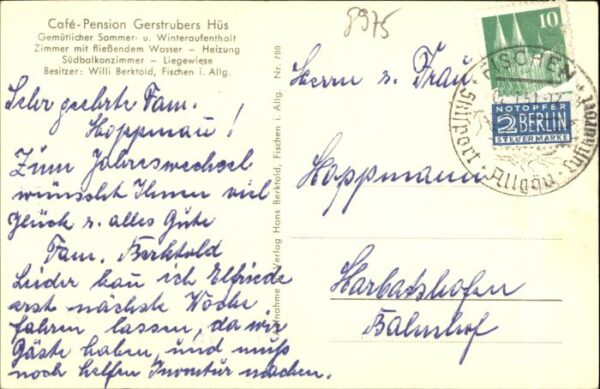 Café-Pension Gerstrubers Hüs
Gemütlicher Sommer- u. Winteraufenthalt
Zimmer mit fließendem Wasser – Heizung
Südbalkonzimmer – Liegewiese
Besitzer: Willi Berktold, Fischen i. Allg.
Sehr geehrte Fam.
Hoppmau!
Zum Jahreswechsel
wünscht Ihnen viel
Glück u. alles Gute
Fam. Berktold
Leider kan ich Elfriede
erst nächste Woche
fahren lassen, da wir
Gäste haben, und muß
noch helfen Inventur machen.
Verlag Hans Berktold, Fischen i. Allg. Nr. 700
8975
Herrn u. Frau
Hoppmann
Harbatshofen
Bahnhof
10
FISCHEN
Skisport · Allgäu · Luftkurort
NOTOPFER
2 BERLIN
STEUERMARKE